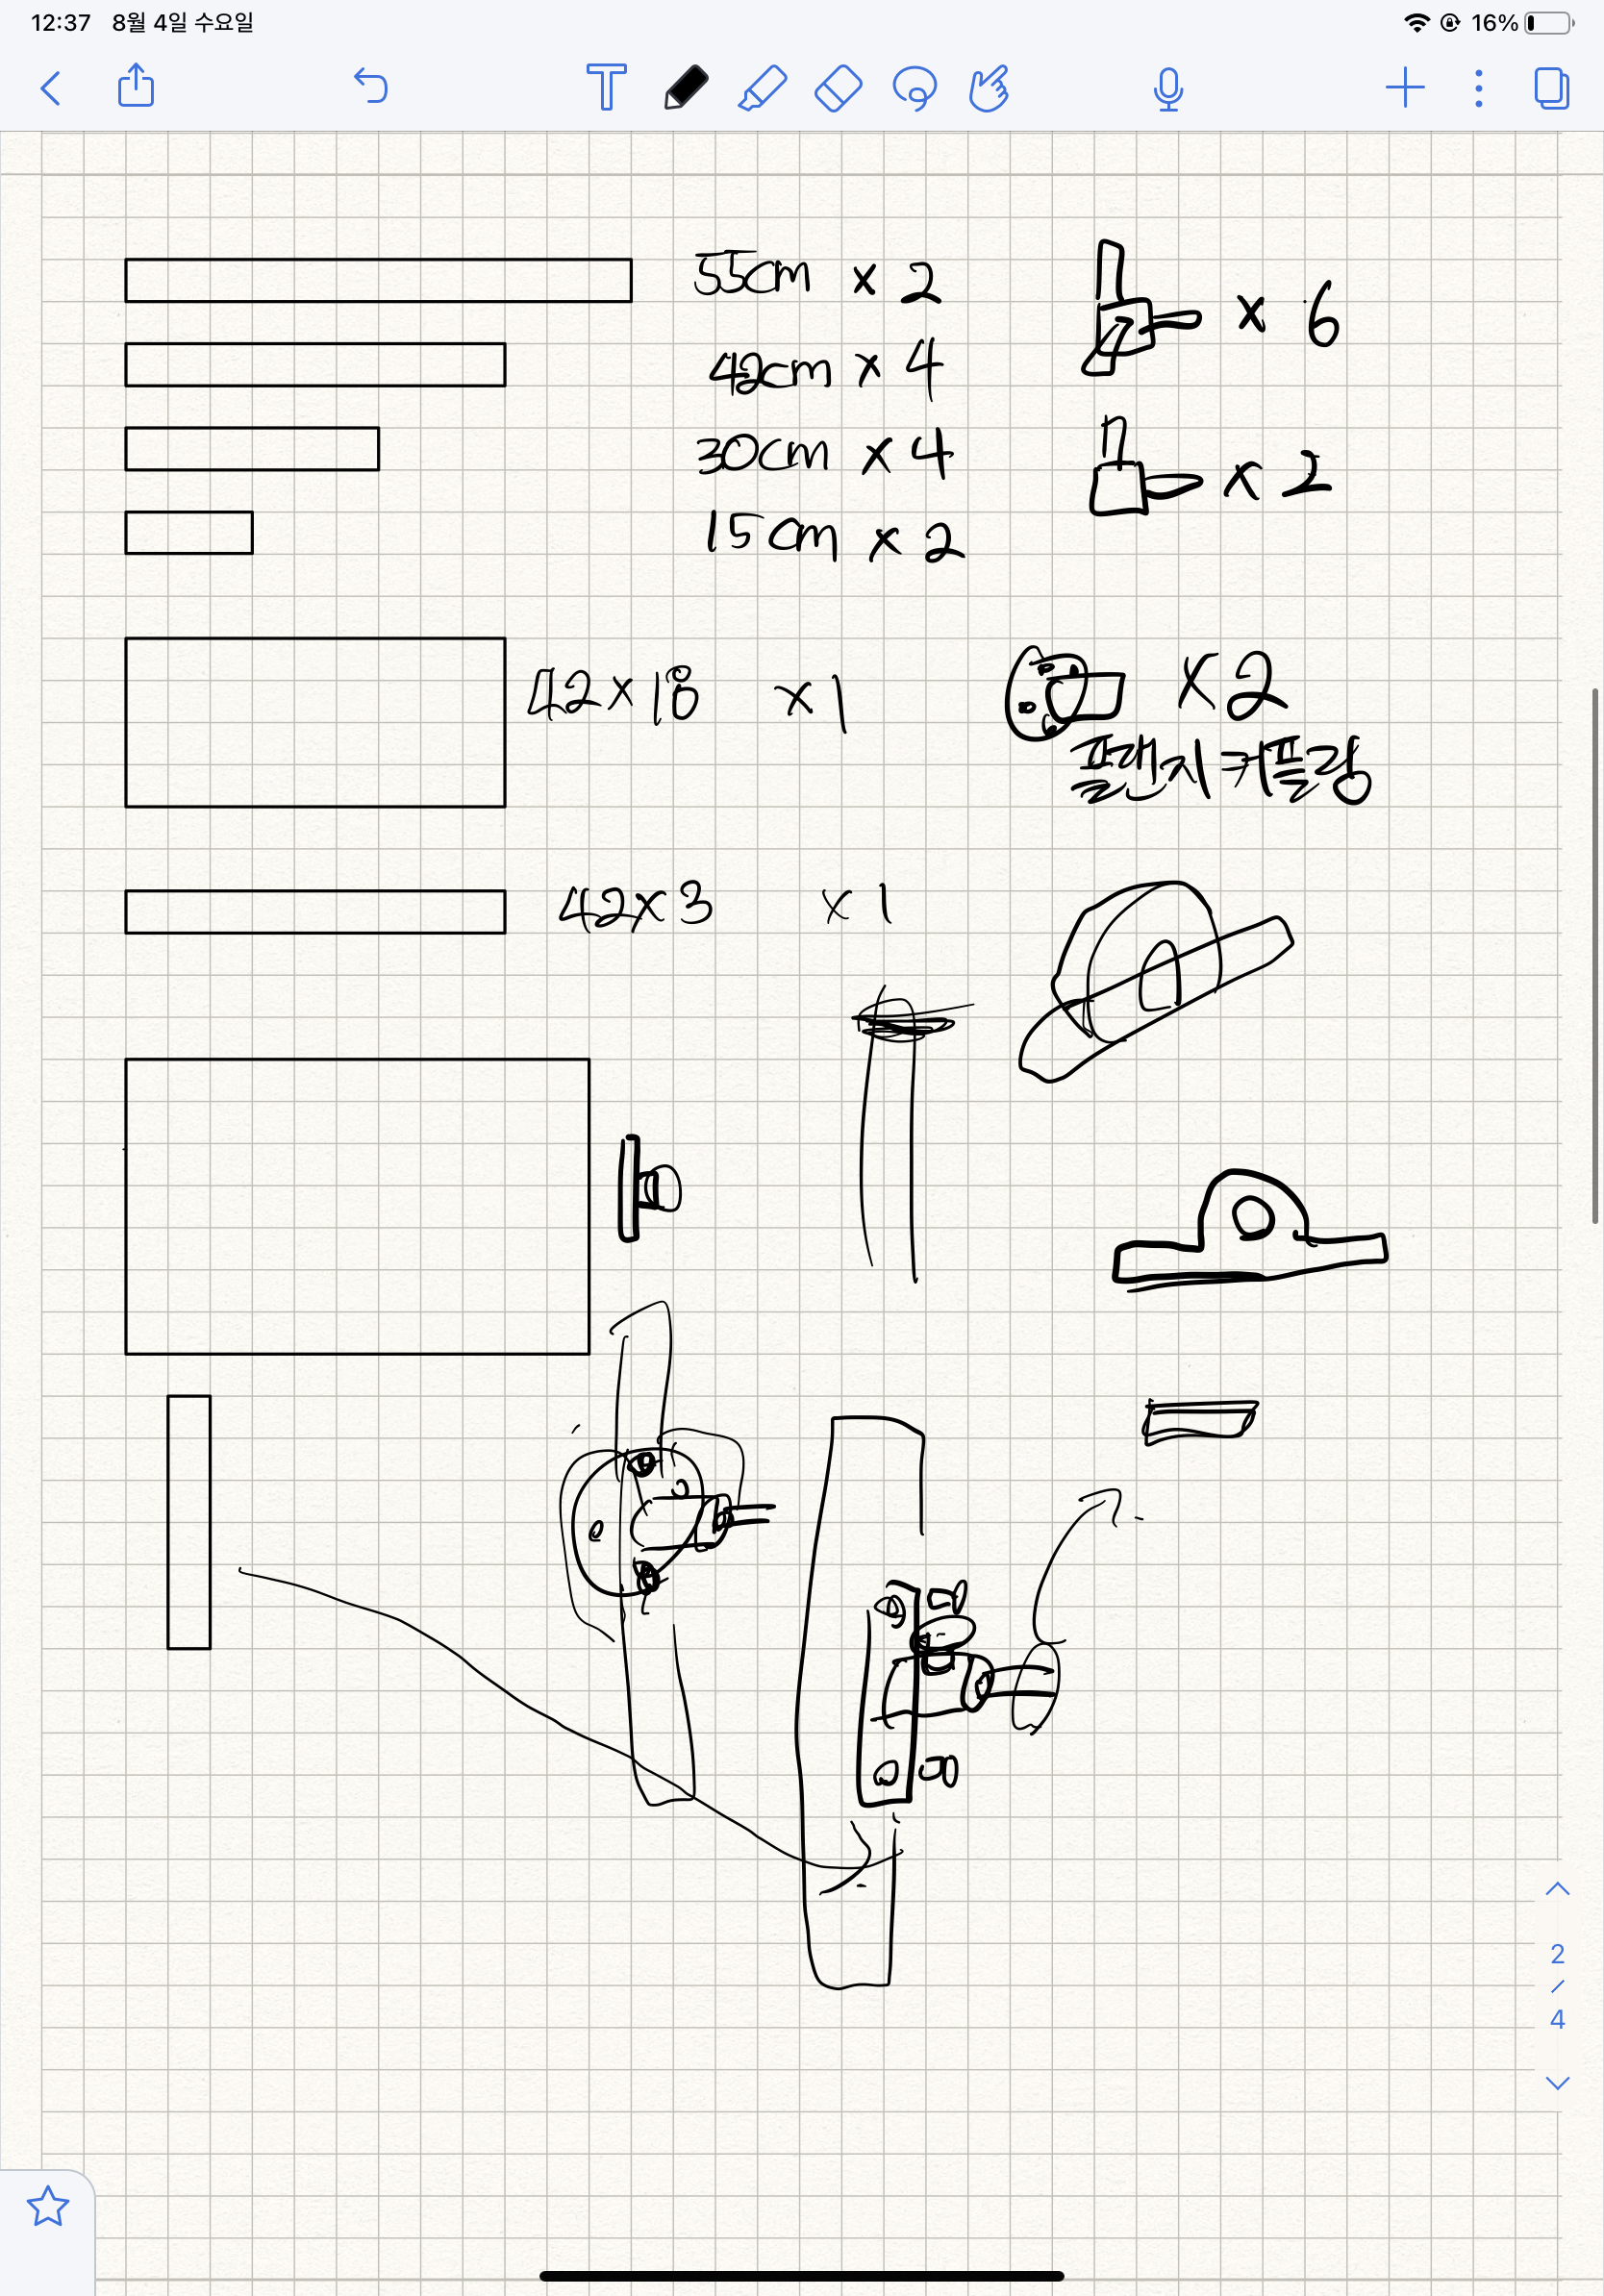 12:37 8월 4일 수요일
16%
55cm x 2
42cm x 4
30cm x 4
15cm x 2
x 6
x 2
42x18 x1
x2
플랜지 커플링
42x3 x1
2
/
4